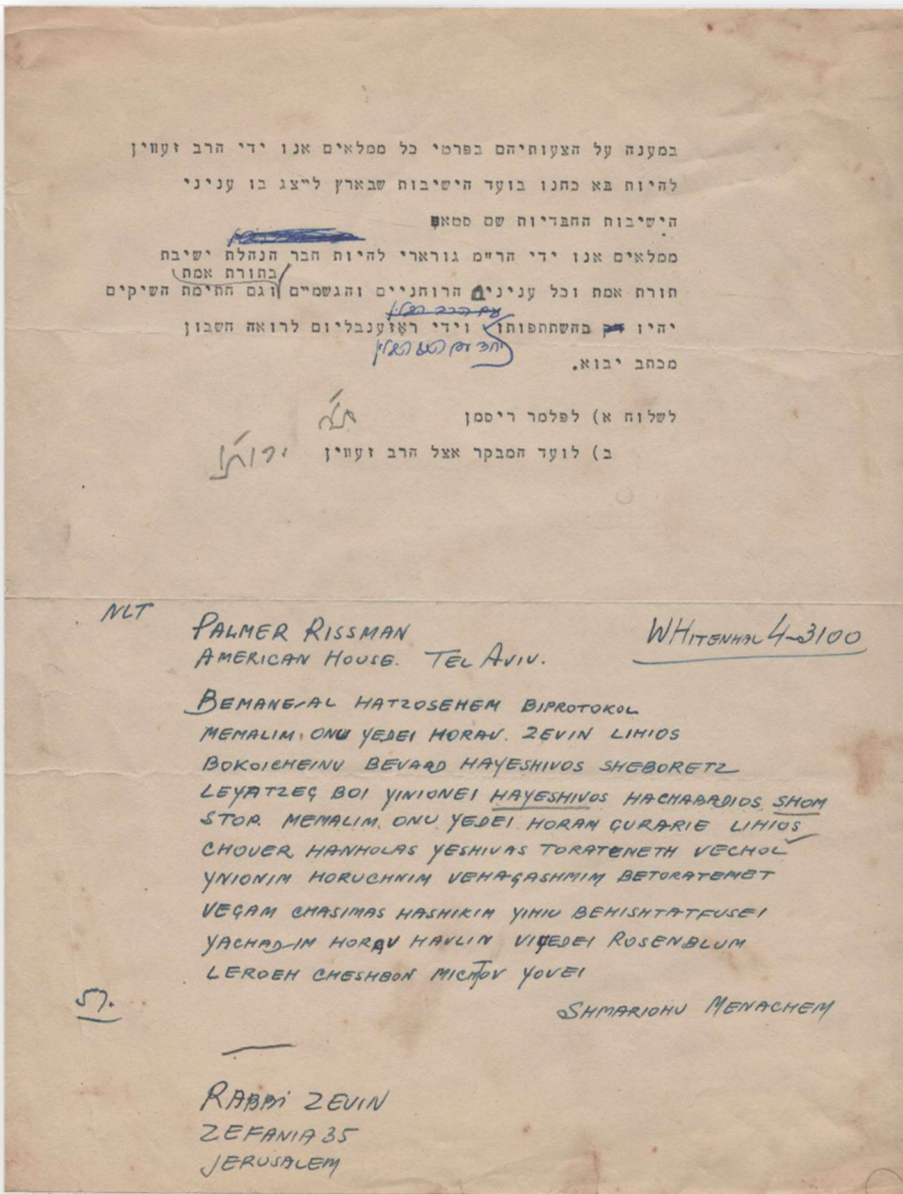 במענה על הצעותיהם בפרטי כל ממלאים אנו ידי הרב זעווין
להיות בא כחנו בועד הישיבות שבארץ לייצג בו עניני
הישיבות החבדיות שם סטאפ
ממלאים אנו ידי הר"מ גורארי להיות חבר הנהלת ישיבת
בתורת אמת
תורת אמת וכל עניני הרוחניים והגשמיים וגם חתימת השיקים
עם הרב הבלין
יהיו בהשתתפותו וידי ראזענבליום לרואה חשבון
יחד עם הרב הבלין
מכתב יבוא.
לשלוח א) לפלמר ריסמן
ב) לועד המבקר אצל הרב זעווין
NLT
PALMER RISSMAN
WHITENHAL 4-3100
AMERICAN HOUSE. TEL AVIV.
BEMANE-AL HATZOSEHEM BIPROTOKOL
MEMALIM ONU YEDEI HORAV. ZEVIN LIHIOS
BOKOICHEINU BEVAAD HAYESHIVOS SHEBORETZ
LEYATZEG BOI YINIONEI HAYESHIVOS HACHABADIOS SHOM
STOP. MEMALIM ONU YEDEI HORAM GURARIE LIHIOS
CHOVER HANHOLAS YESHIVAS TORATEMETH VECHOL
YNIONIM HORUCHNIM VEHAGASHMIM BETORATEMET
VEGAM CHASIMAS HASHIKIM YIHIU BEHISHTATFUSEI
YACHAD-IM HORAV HAVLIN VIYEDEI ROSENBLUM
LEROEH CHESHBON MICHTOV YOVEI
57.
SHMARIOHU MENACHEM
RABBI ZEVIN
ZEFANIA 35
JERUSALEM